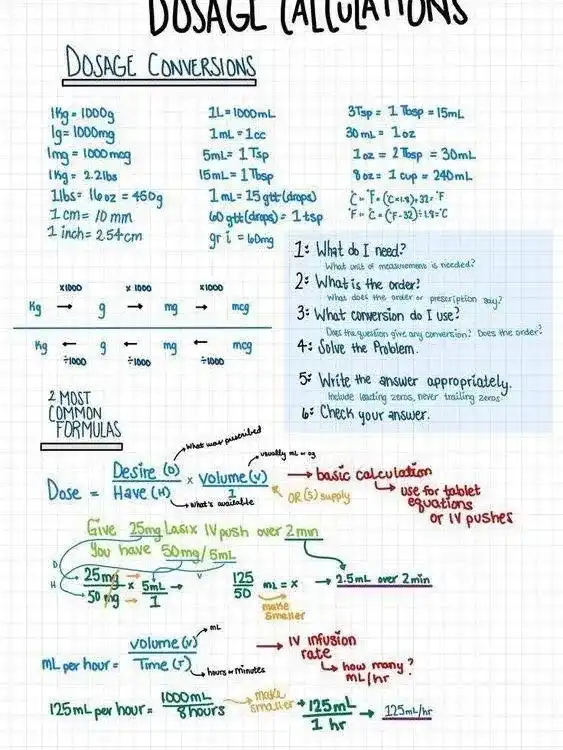 DOSAGE CALCULATIONS
DOSAGE CONVERSIONS
1Kg = 1000g
1g = 1000mg
1mg = 1000mcg
1Kg = 2.2lbs
1lbs = 16oz = 450g
1 cm = 10 mm
1 inch = 2.54cm
1L = 1000mL
1mL = 1cc
5mL = 1Tsp
15mL = 1Tbsp
1 mL = 15 gtt(drops)
60 gtt(drops) = 1 tsp
gr i = 60mg
3Tsp = 1 Tbsp = 15mL
30 mL = 1oz
1oz = 2Tbsp = 30mL
8oz = 1 cup = 240mL
°C - °F = (°C×1.8)+32 = °F
°F - °C = (°F-32)÷1.8 = °C
x1000 x1000 x1000
Kg → g → mg → mcg
Kg ← g ← mg ← mcg
÷1000 ÷1000 ÷1000
1: What do I need?
What unit of measurement is needed?
2: What is the order?
What does the order or prescription say?
3: What conversion do I use?
Does the question give any conversion? Does the order?
4: Solve the Problem.
5: Write the answer appropriately.
Include leading zeros, never trailing zeros
6: Check your answer.
2 MOST
COMMON
FORMULAS
What was prescribed
usually mL or
Dose = Desire (D) / Have (H) x volume (V) / 1
What's available
OR (S) supply
→ basic calculation
use for tablet
equations
or IV pushes
Give 25mg Lasix IV push over 2min
You have 50mg/5mL
D
H
V
25mg / 50mg x 5mL / 1 →
125 / 50 mL = x
make
smaller
→ 2.5mL over 2min
mL per hour = volume (V) / Time (T)
mL
hours or minutes
→ IV infusion
rate
how many?
mL/hr
125mL per hour = 1000mL / 8hours
make
smaller
→ 125mL / 1 hr → 125mL/hr